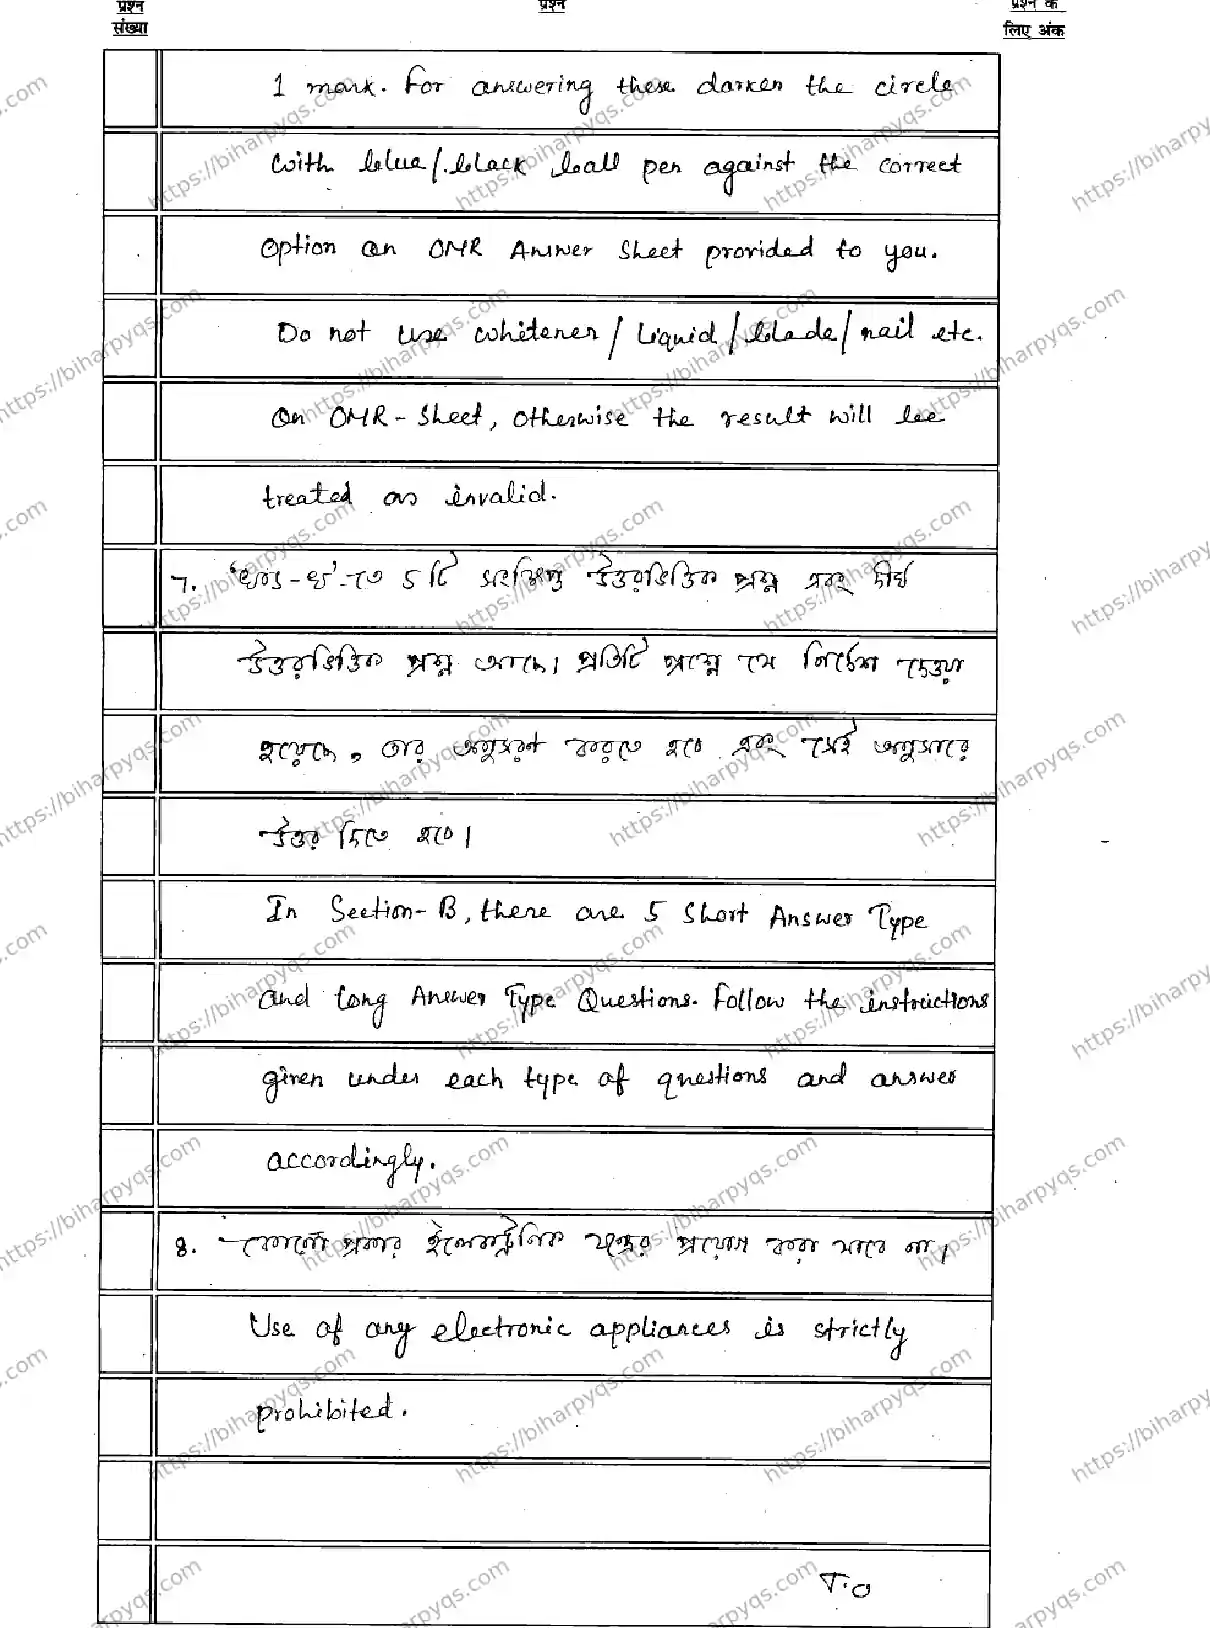 प्रश्न संख्या
प्रश्न
प्रश्न के लिए अंक
1 mark. For answering these darken the circle
with blue/black ball pen against the correct
option on OMR Answer Sheet provided to you.
Do not use whitener/liquid/blade/nail etc.
on OMR-Sheet, otherwise the result will be
treated as invalid.
7. 'খণ্ড-খ'-তে ৫টি সংক্ষিপ্ত উত্তরভিত্তিক প্রশ্ন এবং দীর্ঘ
উত্তরভিত্তিক প্রশ্ন আছে। প্রতিটি প্রশ্নে যে নির্দেশ দেওয়া
হয়েছে, তার অনুসরণ করতে হবে এবং সেই অনুসারে
উত্তর দিতে হবে।
In Section-B, there are 5 Short Answer Type
and Long Answer Type Questions. Follow the instructions
given under each type of questions and answer
accordingly.
8. কোনো প্রকার ইলেকট্রনিক যন্ত্রের প্রয়োগ করা যাবে না।
Use of any electronic appliances is strictly
prohibited.
T.O
https://biharpyqs.com